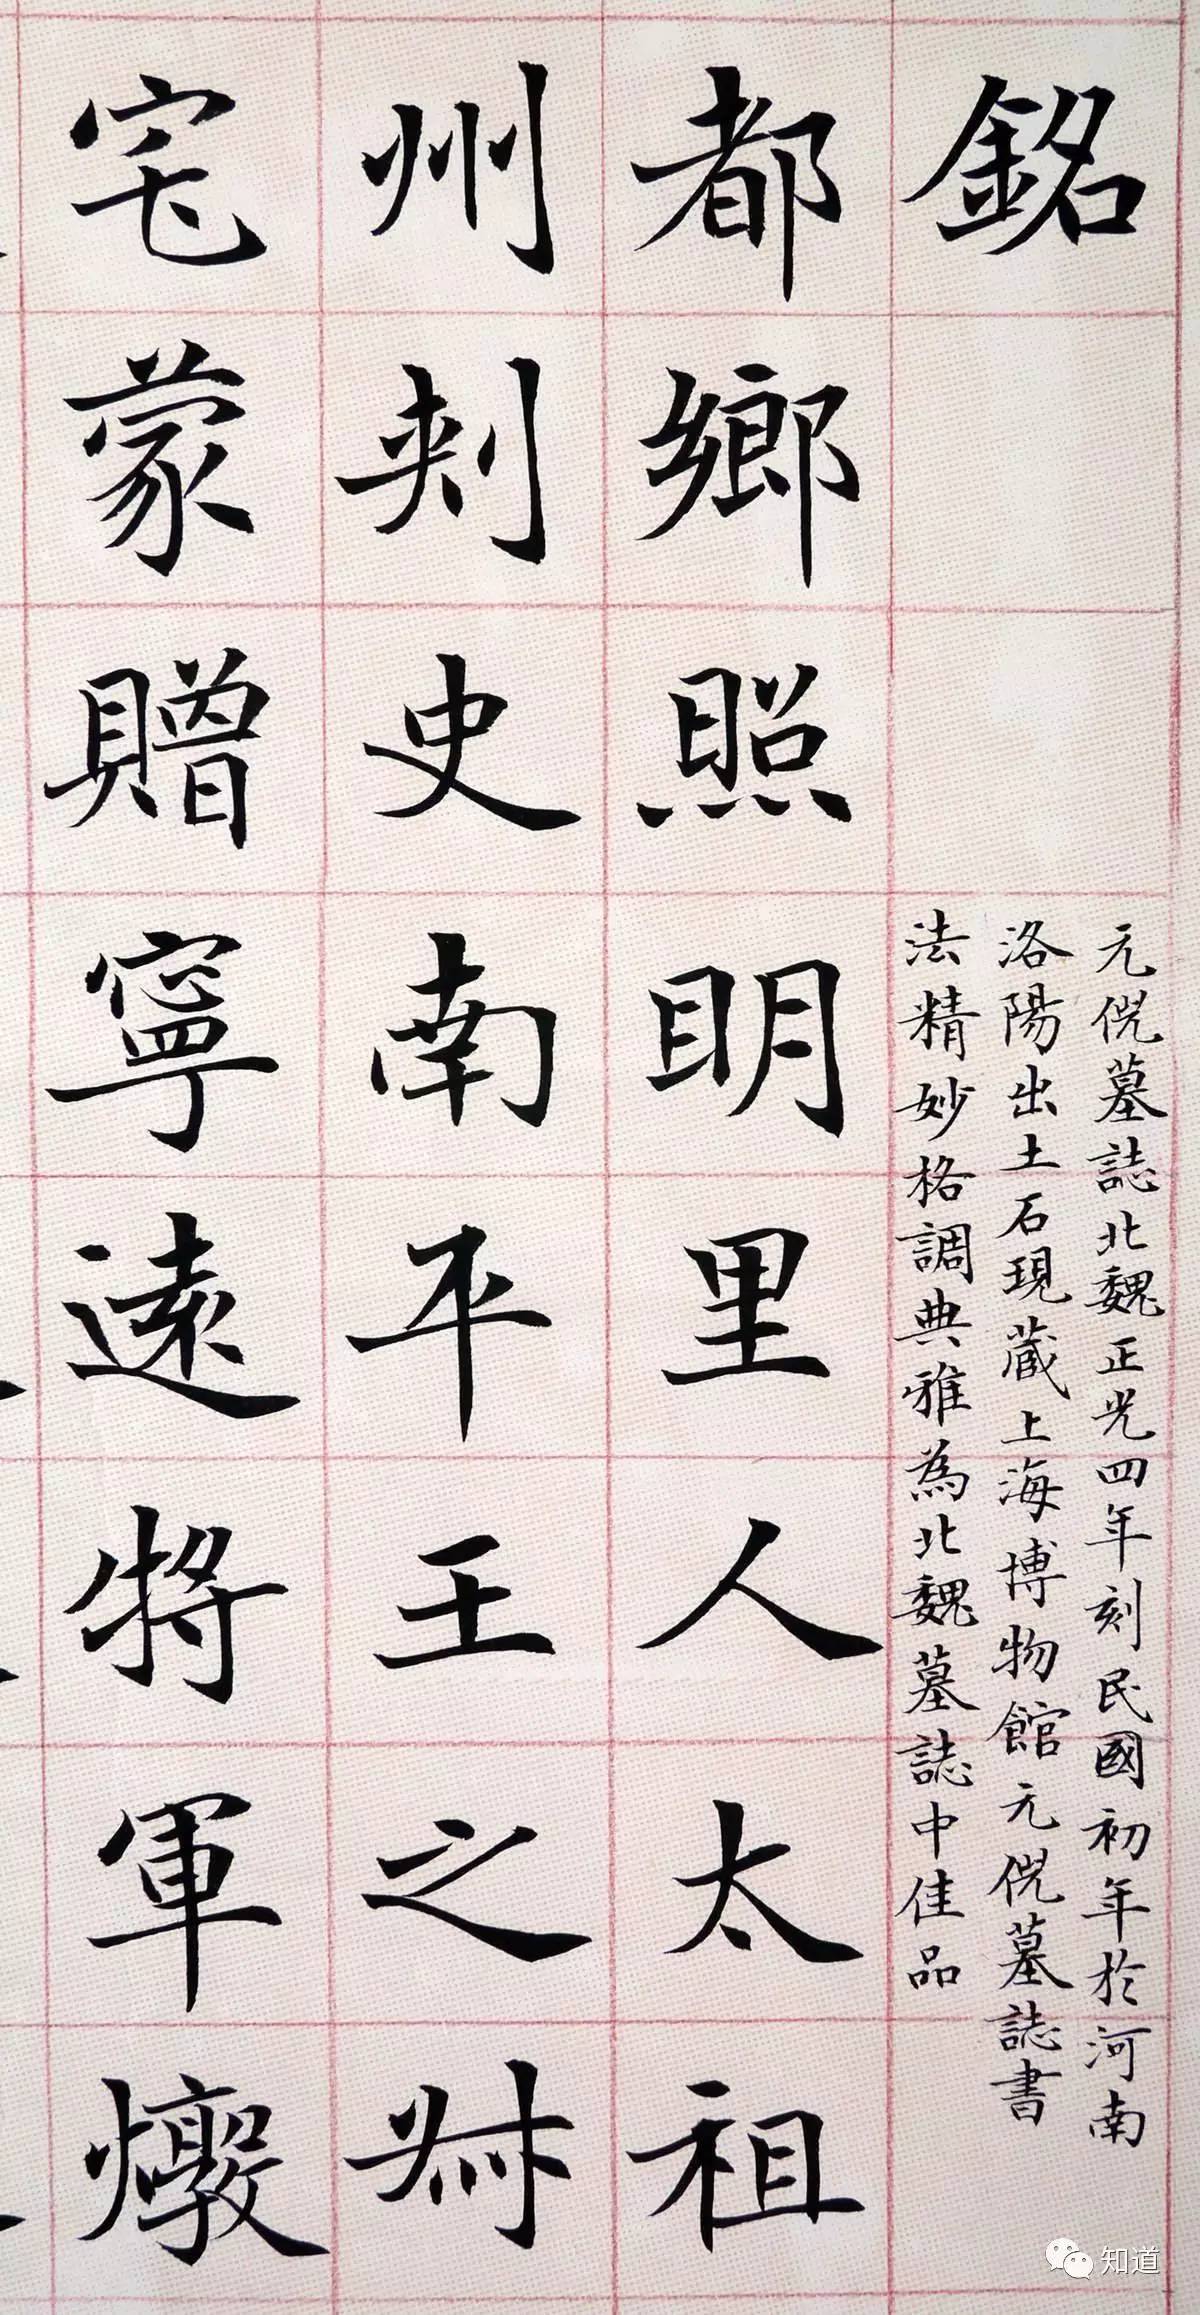 銘
元倪墓誌北魏正光四年刻民國初年於河南
洛陽出土石現藏上海博物館元倪墓誌書
法精妙格調典雅為北魏墓誌中佳品
都鄉照明里人太祖
州刾史南平王之
宅蒙贈寧遠將軍燉
知道